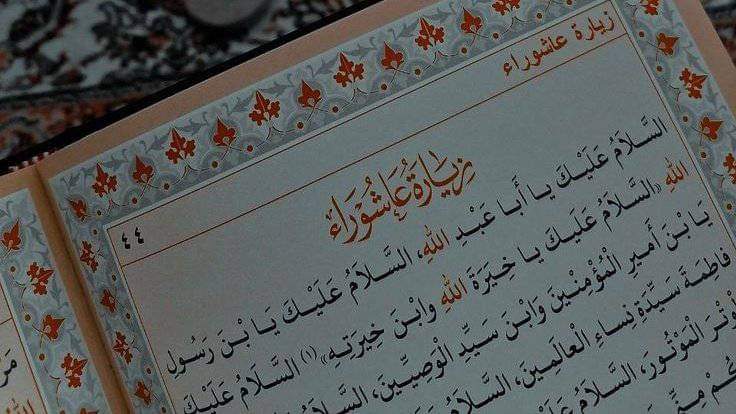 زيارة عاشوراء
٤٤
زِيَارَةُ عَاشُورَاءَ
السَّلَامُ عَلَيْكَ يَا أَبَا عَبْدِ اللهِ، السَّلَامُ عَلَيْكَ يَا بْنَ رَسُولِ
اللهِ «السَّلَامُ عَلَيْكَ يَا خِيَرَةَ اللهِ وابْنَ خِيَرَتِهِ»(١) السَّلَامُ عَلَيْكَ
يَا بْنَ أَمِيرِ الْمُؤْمِنِينَ وَابْنَ سَيِّدِ الْوَصِيِّينَ، السَّلَامُ عَلَيْكَ
فَاطِمَةَ سَيِّدَةِ نِسَاءِ الْعَالَمِينَ، السَّلَامُ
الْمَوْتُورَ، السَّلَامُ